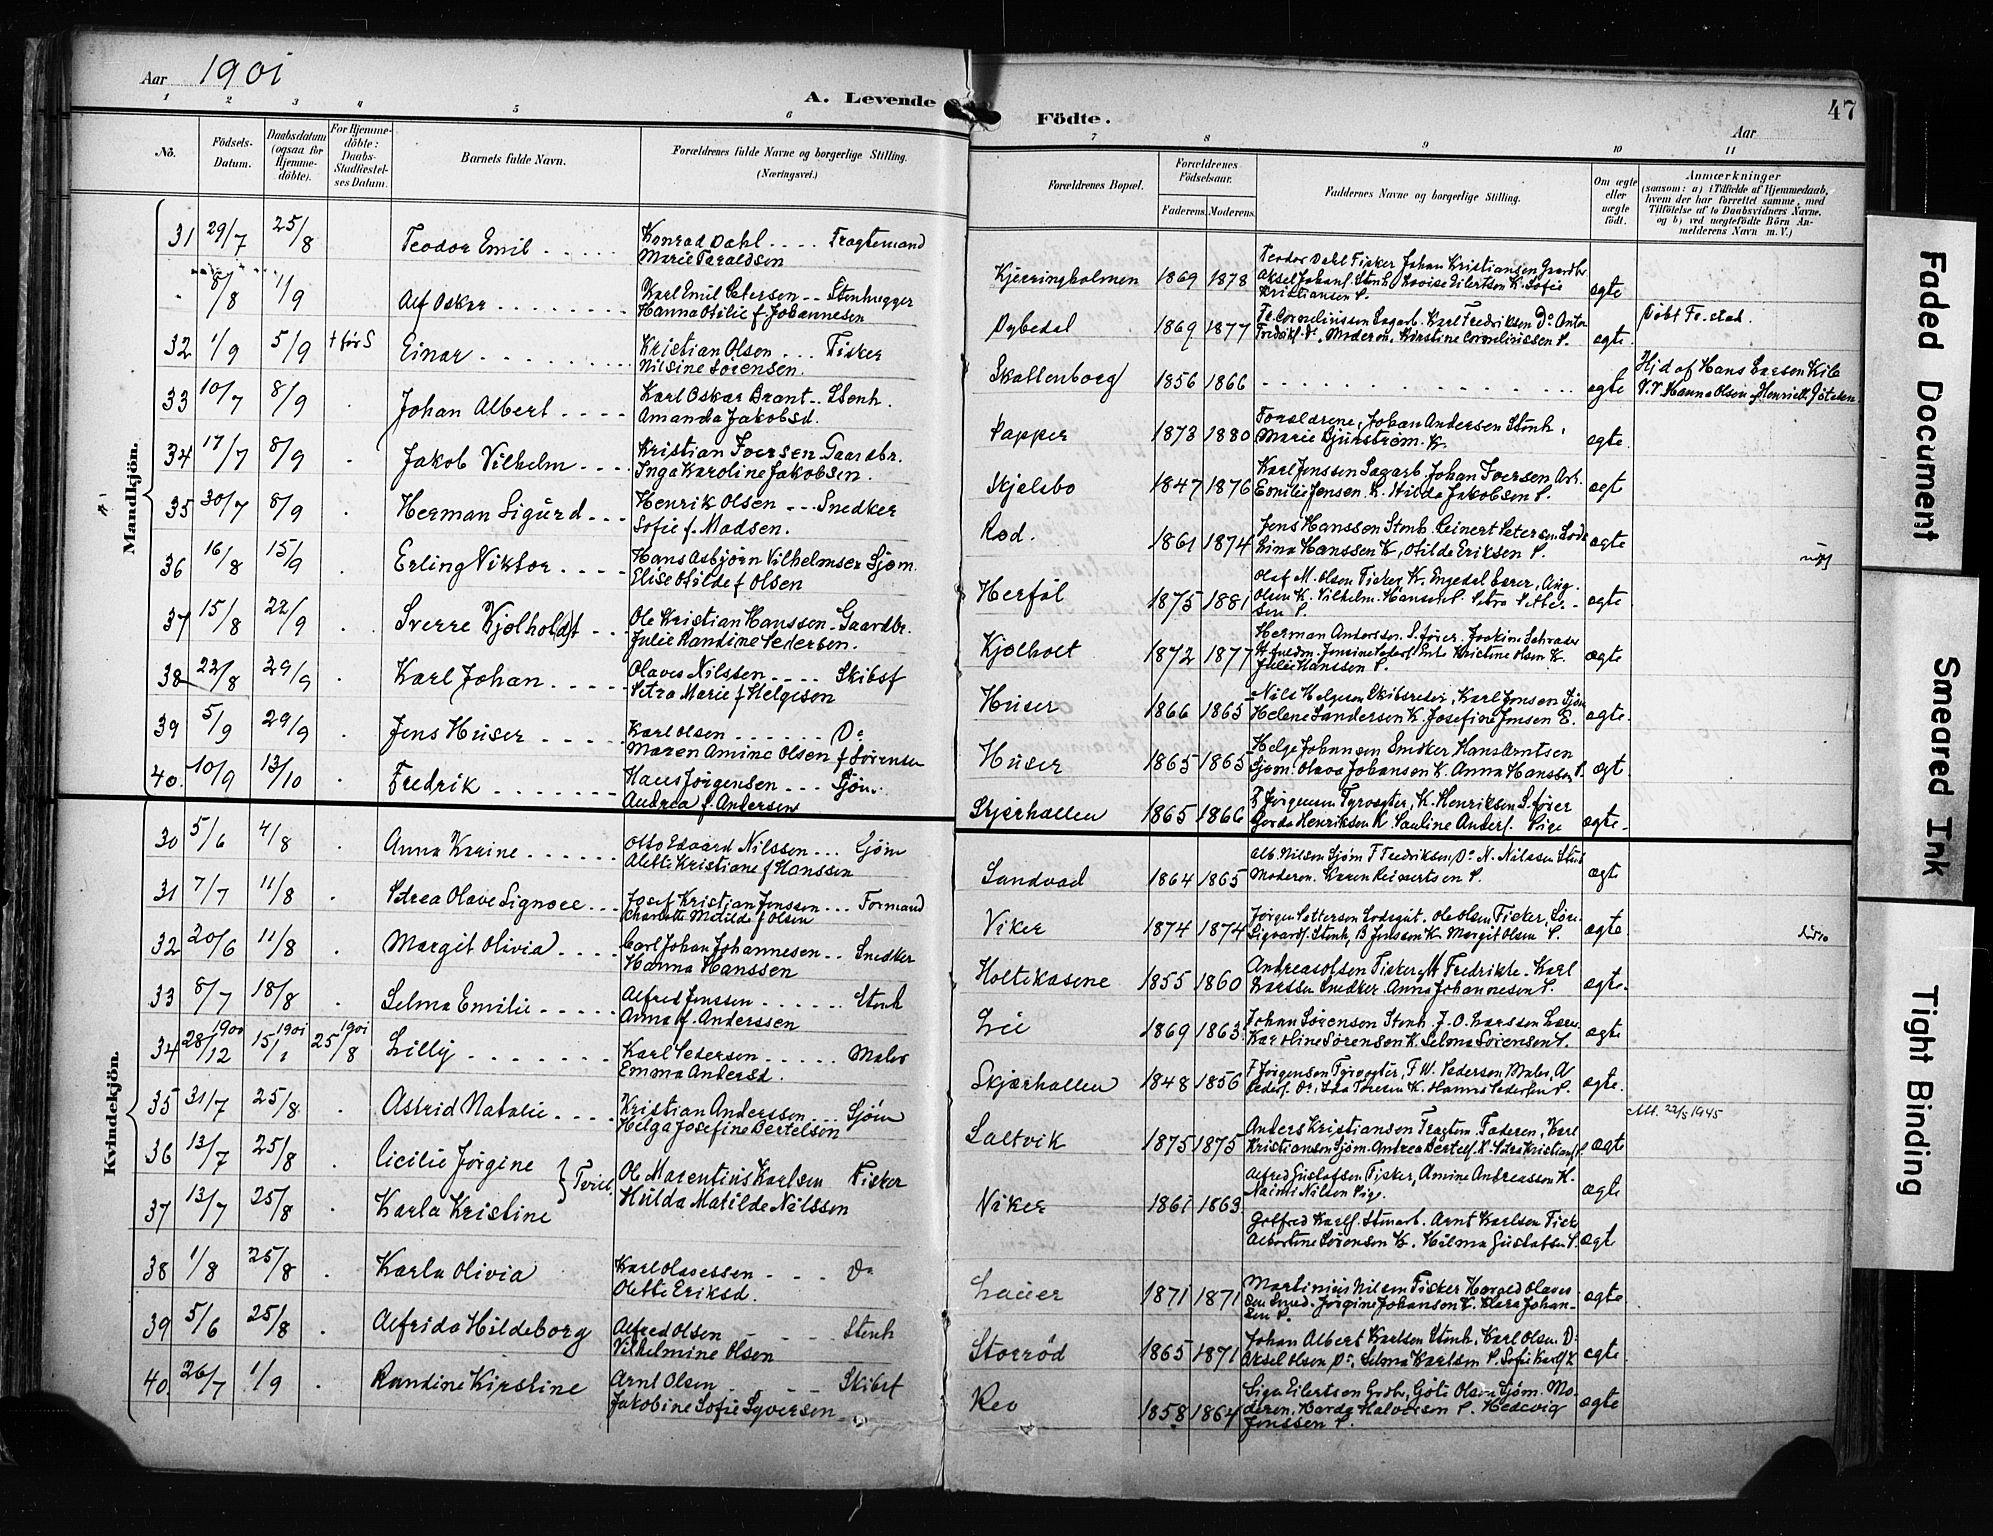 Aar 1901
A. Levende Födte.
47
Aar
1 2 3 4 5 6 7 8 9 10 11
Nö.
Födsels-Datum.
Daabsdatum (ogsaa for Hjemme-döbte).
For Hjemme-döbte: Daabs-Stadfæstel-ses Datum.
Barnets fulde Navn.
Forældrenes fulde Navne og borgerlige Stilling. (Næringsvei.)
Forældrenes Bopæl.
Forældrenes Födselsaar.
Faderens. Moderens.
Faddernes Navne og borgerlige Stilling.
Om ægte eller uægte födt.
Anmærkninger
(saasom: a) i Tilfælde af Hjemmedaab, hvem der har forrettet samme, med Tilföielse af to Daabsvidners Navne, og b) ved uægtefödte Börn An-melderens Navn m. V.)
Mandkjön.
31 29/7 25/8 Teodor Emil Konrad Dahl Fragtemand
Marie Taraldsen
Kjerringholmen 1869 1878 Teodor Dahl Fisker Johan Kristiansen Gaardbr
Kristiansen P. ægte
8/8 1/9 Alf Oskar Karl Emil Petersen Stenhugger
Hanna Otilie f. Johannesen
Dybedal 1869 1877 ægte
32 1/9 5/9 Einar Kristian Olsen Fisker
Nilsine Sörensen
Skallenborg 1856 1866 ægte Hjd af Hans Larsen
Hanna Olsen
33 10/7 8/9 Johan Albert Karl Oskar Brant Stenh.
Amanda Jakobsd.
Papper 1873 1880 Forældrene, Johan Andersen Stenh.
Marie K. ægte
34 17/7 8/9 Jakob Vilhelm Kristian Iversen Gaardbr.
Inga Karoline Jakobsen.
Skjelsbo 1847 1876 Karl Jenssen Sagarb. Johan Iversen Arb.
Emilie Jensen K. Hilda Jakobsen P. ægt
35 30/7 8/9 Herman Sigurd Henrik Olsen Snedker
Sofie f. Madsen.
Rod. 1861 1874 Jens Hanssen Stenh. Reinert Petersen Lods
Lina Hanssen K, Otilde Eriksen P. ægte
36 16/8 15/9 Erling Viktor Hans Asbjörn Vilhelmsen Sjöm.
Elise Otilde f Olsen
Herföl 1875 1881 Olaf M. Olsen Fisker K. Engedal Lærer, Aug.
Olsen K. Vilhelm Hansen P. Petra Petter-
sen P. ægte
37 15/8 22/9 Sverre Kjölholdt Ole Kristian Hanssen Gaardbr.
Julie Randine Pedersen.
Kjölholt 1872 1877 Herman Anderssen S.förer. Joakim Schrader
Kristine Olsen K.
Julie Hanssen P. ægte
38 22/8 29/9 Karl Johan Olaves Nilssen Skibsf
Petra Marie f Helgesen
Huser 1866 1865 Nils Helgesen Skibsreder, Karl Jensen Sjöm
Helene Sandersen K. Josefine Jensen P. ægte.
39 5/9 29/9 Jens Huser Karl Olsen Do
Maren Amine Olsen f Sörensen
Huser 1865 1865 Helge Johansen Snedker Hans Arntsen
Sjöm. Olava Johansen K. Anna Hanssen P. ægt
40. 10/9 13/10 Fredrik Hans Jörgensen Sjöm.
Andrea f. Andersen
Skjærhallen 1865 1866 F Jörgensen Fyrvogter, K. Henriksen S.förer
Gerda Henriksen K. Pauline Anders. Pige ægte
Kvindekjön.
30 5/6 4/8 Anna Karine Otto Edvard Nilssen Sjöm
Alette Kristiane f Hanssen
Sandvad 1864 1865 Alb. Nilsen Sjöm F Fredriksen Do N. Nilssen Stenh
Moderen. Karen Reinertsen P. ægt
31 7/7 11/8 Petrea Olave Signore Josef Kristian Jenssen Formand
Charlotte Matilde f Olsen
Viker 1874 1874 Jörgen Pettersen Lodsgut. Ole Olsen Fisker,
Stenh, B Jenssen K. Margit Olsen P. ægte
32 20/6 11/8 Margit Olivia Carl Johan Johannesen Snedker
Hanna Hanssen
Holtekasene 1855 1860 Andreas Olsen Fisker, M Fredrikke. Karl
Larssen Snedker. Anna Johannesen P. ægte.
33 8/7 18/8 Selma Emilie Alfred Jenssen Stenh
Anna f. Anderssen
Lie 1869 1863 Johan Sörensen Stenh. J. O. Larssen Lærer.
Karoline Sörensen K. Selma Sörensen P. ægte
34 28/12 1900 15/1 1901 25/8 1901 Lilly Karl Pedersen Maler
Emma Andersd.
Skjærhallen 1848 1856 F Jörgensen Fyrvogter, F W. Pedersen Maler, A
Peders. Do, K. Hanna Pedersen P. ægte.
35 31/7 25/8 Astrid Natalie Kristian Anderssen Sjöm
Helga Josefine Bertelsen
Saltvik 1875 1875 Anders Kristiansen Fragtem. Faderen, Karl
Kristiansen Sjöm. Andrea Bertels. K. Petra Kristians. P. ægte
Att. 22/5 1945
36 13/7 25/8 Cicilie Jörgine } Tvill. Ole Marentius Karlsen Fisker
Hulda Matilde Nilssen
Viker 1861 1863 Alfred Gustafsen Fisker, Amine Andreassen K.
Naimi Nilsen Pige. ægte
37 13/7 25/8 Karla Kristine
Gotfred Karls. Stenarb. Arnt Karlsen Fisk.
Albertine Sörensen K. Hilma Gustafsen P. ægte
38 1/8 25/8 Karla Olivia Karl Olavessen Do
Olette Eriksd.
Lauer 1871 1871 Martinius Nilsen Fisker Harald Olaves-
sen Smed. Jörgine Johansen K. Klara Johan-
sen P. ægte
39 5/6 25/8 Alfrida Hildeborg Alfred Olsen Stenh
Vilhelmine Olsen
Storröd 1865 1871 Johan Albert Karlsen Stenh. Karl Olsen Do
Aksel Olsen Do, Selma Karlsen P. Sofie Karls K ægte
40. 26/7 1/9 Randine Kirstine Arnt Olsen Skibsf
Jakobine Sofie Syversen
Rev 1858 1864 Eilertsen Grdbr, Göte Olsen Sjöm. Mo-
deren, Halvorsen P. Hedevig
Jenssen P. ægte
Faded Document
Smeared Ink
Tight Binding